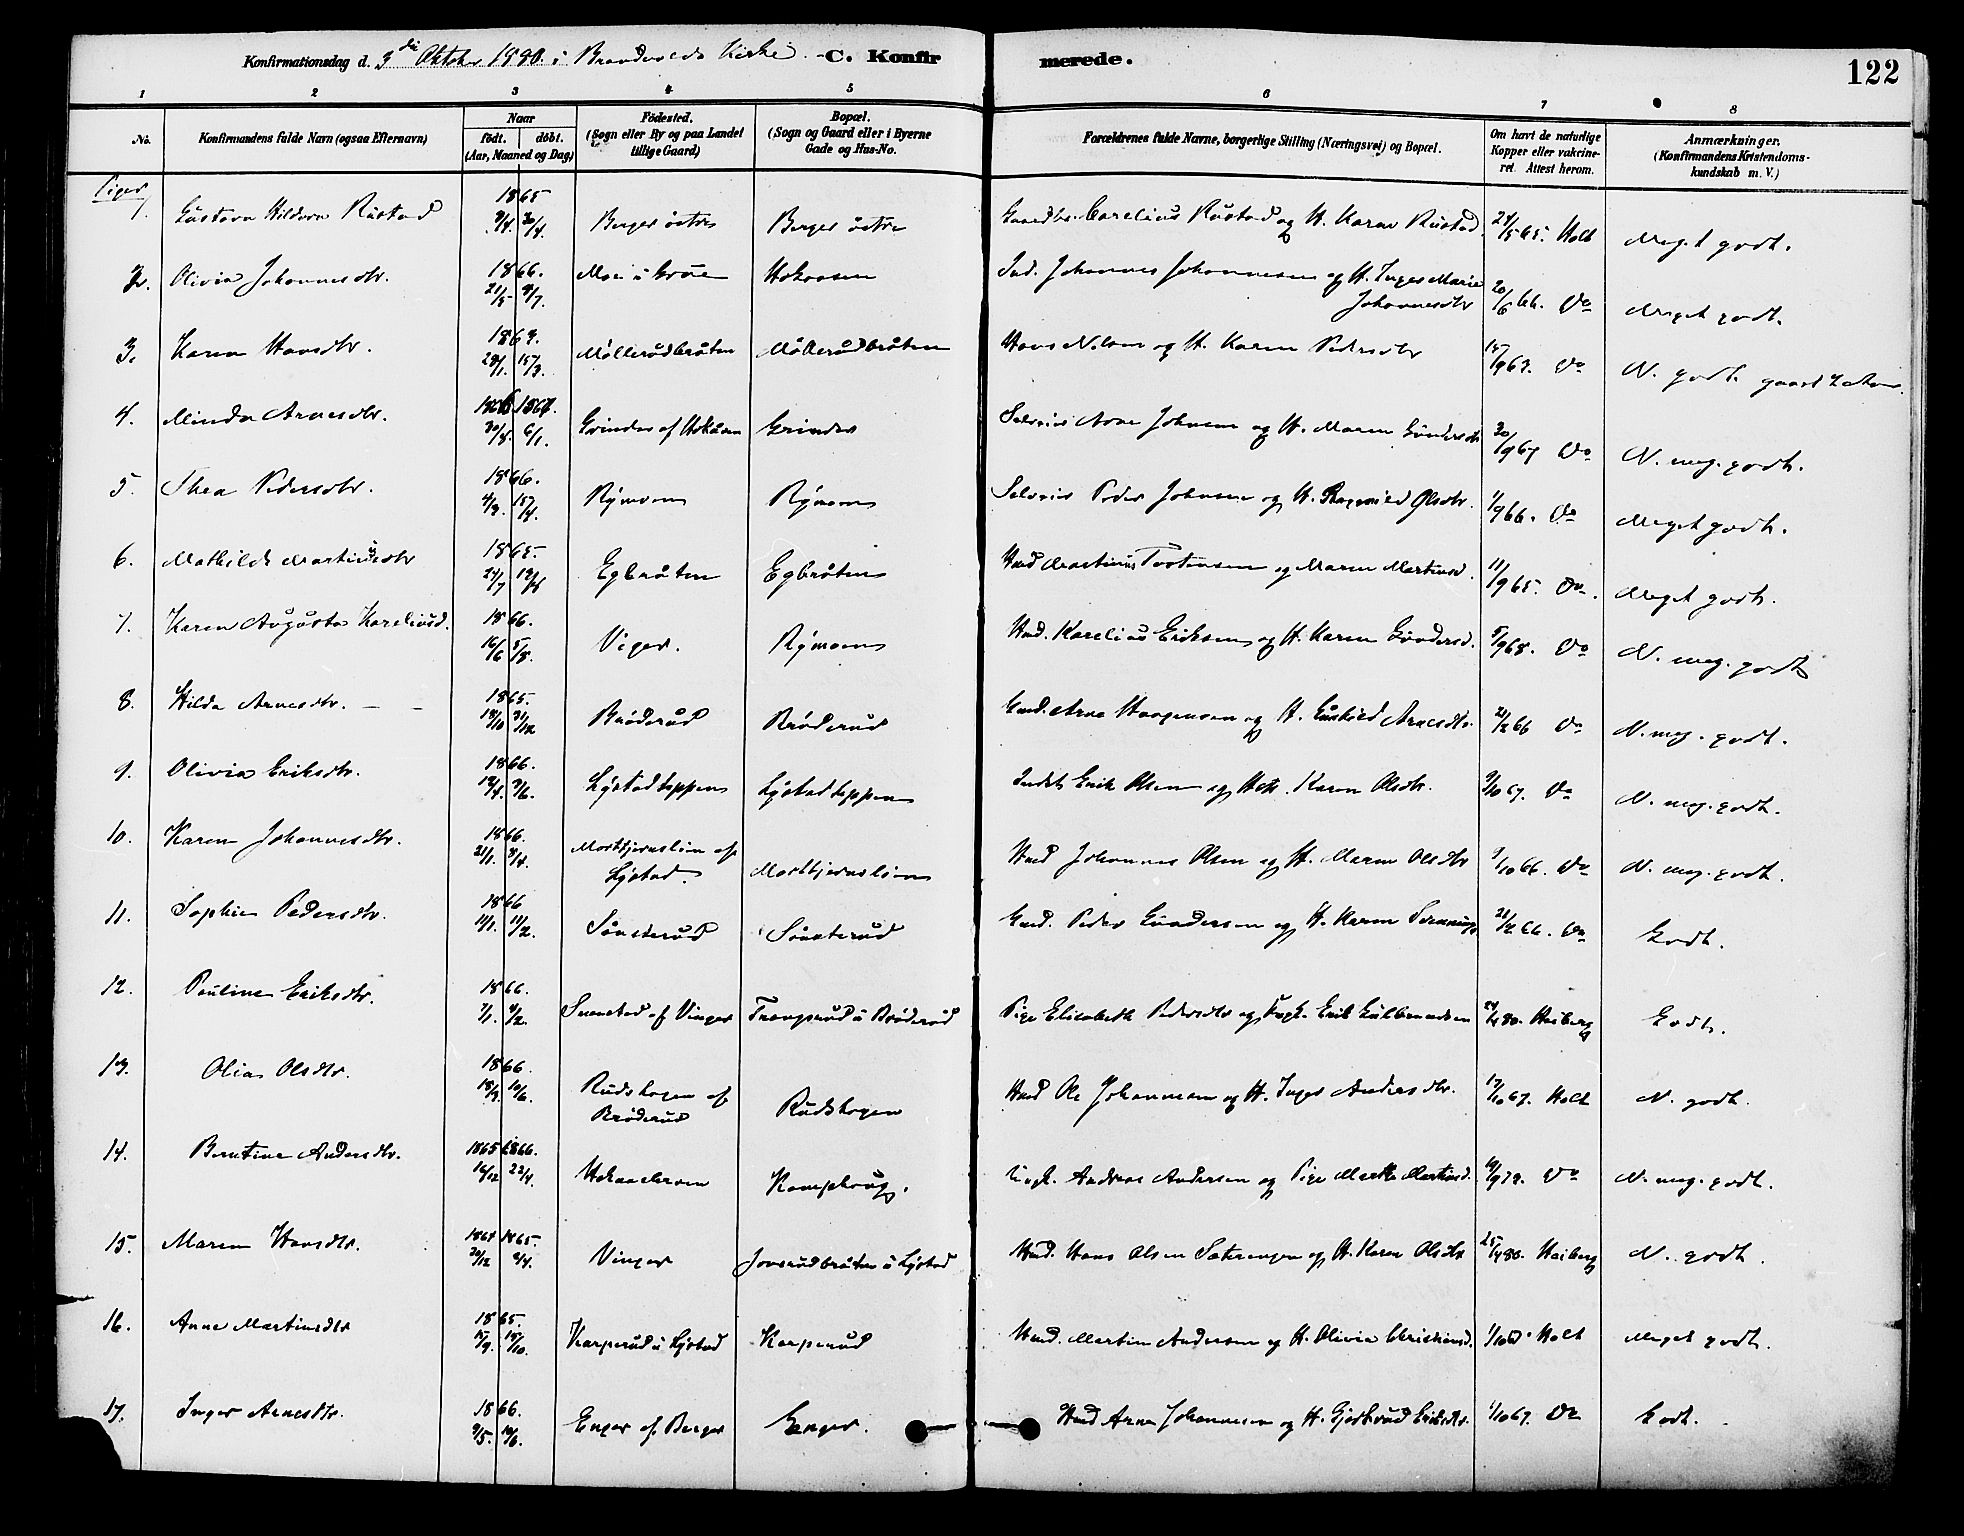 Konfirmationsdag d. 3die Oktober 1880 i Brandvolds Kirke. C. Konfirmerede. 122
1 2 3 4 5 6 7 8
No. Konfirmandens fulde Navn (ogsaa Efternavn) Naar født. døbt. (Aar, Maaned og Dag) Fødested. (Sogn eller By og paa Landet tillige Gaard) Bopæl. (Sogn og Gaard eller i Byerne Gade og Hus-No. Forældrenes fulde Navne, borgerlige Stilling (Næringsvei) og Bopæl. Om havt de naturlige Kopper eller vakcineret. Attest herom. Anmærkninger. (Konfirmandens Kristendomskundskab m. V.)
Piger
1. Gustava Hildora Rustad 1865 9/4. 30/4. Berger østre Berger østre Gaardbr. Carelius Rustad og H. Karen Rustad 24/5 65. Holt Meget godt.
2. Olivia Johannesdtr. 1866. 21/5 8/7. Moen i Grue Hokaasen Ind. Johannes Johannesen og H. Inger Marie Johannesdtr 20/6 66. Do Meget godt.
3. Karen Hansdtr. 1863. 29/1. 15/3. Møllerudbråten Møllerudbråten Hans Nilsen og H. Karen Pedersdtr 15/9 63. Do N. godt
4. Minda Arnesdtr. 1866 1867. 30/8. 6/1. Grinder af Hokåsen Grinder Selveier Arne Johnsen og H. Maren Gundersdtr 30/9 67 Do N. meg. godt.
5. Thea Pedersdtr. 1866. 4/3. 15/4. Rymoen Rymoen Selveier Peder Johnsen og H. Ragnild Olsdtr. 1/9 66. Do Meget godt.
6. Mathilde Martinusdtr 1865. 24/7 Egbråten Egbråten Husd Martinus Torstensen og Maren Martinsd. 11/9 65. Do. Meget godt.
7. Karen Augusta Kareliusd. 1866. 16/6 5/8. Viger. Rymoen Husd. Karelius Eriksen og H. Karen Gundersd. 5/9 68. Do N. meg. godt
8. Hilda Arnesdtr. — — 1865. 18/10 31/12 Brøderud Brøderud Gmd. Arne Haagensen og H. Gunhild Arnesdtr. 21/2 66 Do N. meg. godt.
9. Olivia Eriksdtr. 1866. 12/4. 3/6. Lystadteppen Lystadteppen Inds. Erik Olsen og H. Karen Olsdtr. 9/10 67. Do N. meg. godt.
10. Karen Johannesdtr. 1866. 21/1. 8/4. Mortkjernslien af Lystad. Mortkjernslien Husd Johannes Olsen og H. Maren Olsdtr 9/10 66. Do N. meg. godt.
11. Sophie Pedersdtr. 1866 14/1. 11/2. Sønsterud Sønsterud Gmd. Peder Gundersen og H. Karen 21/12 66. Do Godt.
12. Pauline Eriksdtr. 1866. 7/1. 4/2. Svenstad af Vinger Trangsrud i Brøderud Pige Elisabeth Pedersdtr og Ungk. Erik Gulbrandsen 24/4 80. Heiberg Godt.
13. Olia Olsdtr. 1866. 18/3. 10/6. Rudshagen af Brøderud Rudshagen Husd Ole Johannesen og H. Inger Andersdtr. 17/10 67. Holt N. godt.
14. Berntine Andersdtr. 1865 1866. 16/12 22/4. Kamphaug. Ungk. Andreas Andersen og Pige Marthe Martinsd. 19/9 72. Do N. meg. godt.
15. Maren Hansdtr. 1864 1865. 30/12 2/4. Vinger Jonsrudbråten i Lystad Husd. Hans Olsen Sæterengen og H. Karen Olsdtr 25/4 80. Heiberg N. godt.
16. Anne Martinsdtr 1865. 15/9. 15/10. Karperud i Lystad Karperud Husd. Martin Andersen og H. Olivia Christiansd. 1/10 67. Holt Meget godt.
17. Inger Arnesdtr. 1866. 9/5. 10/6. Enger af Berger Enger. Husd Arne Johannesen og H. Gjertrud Eriksdtr. 1/10 67. Do Godt.